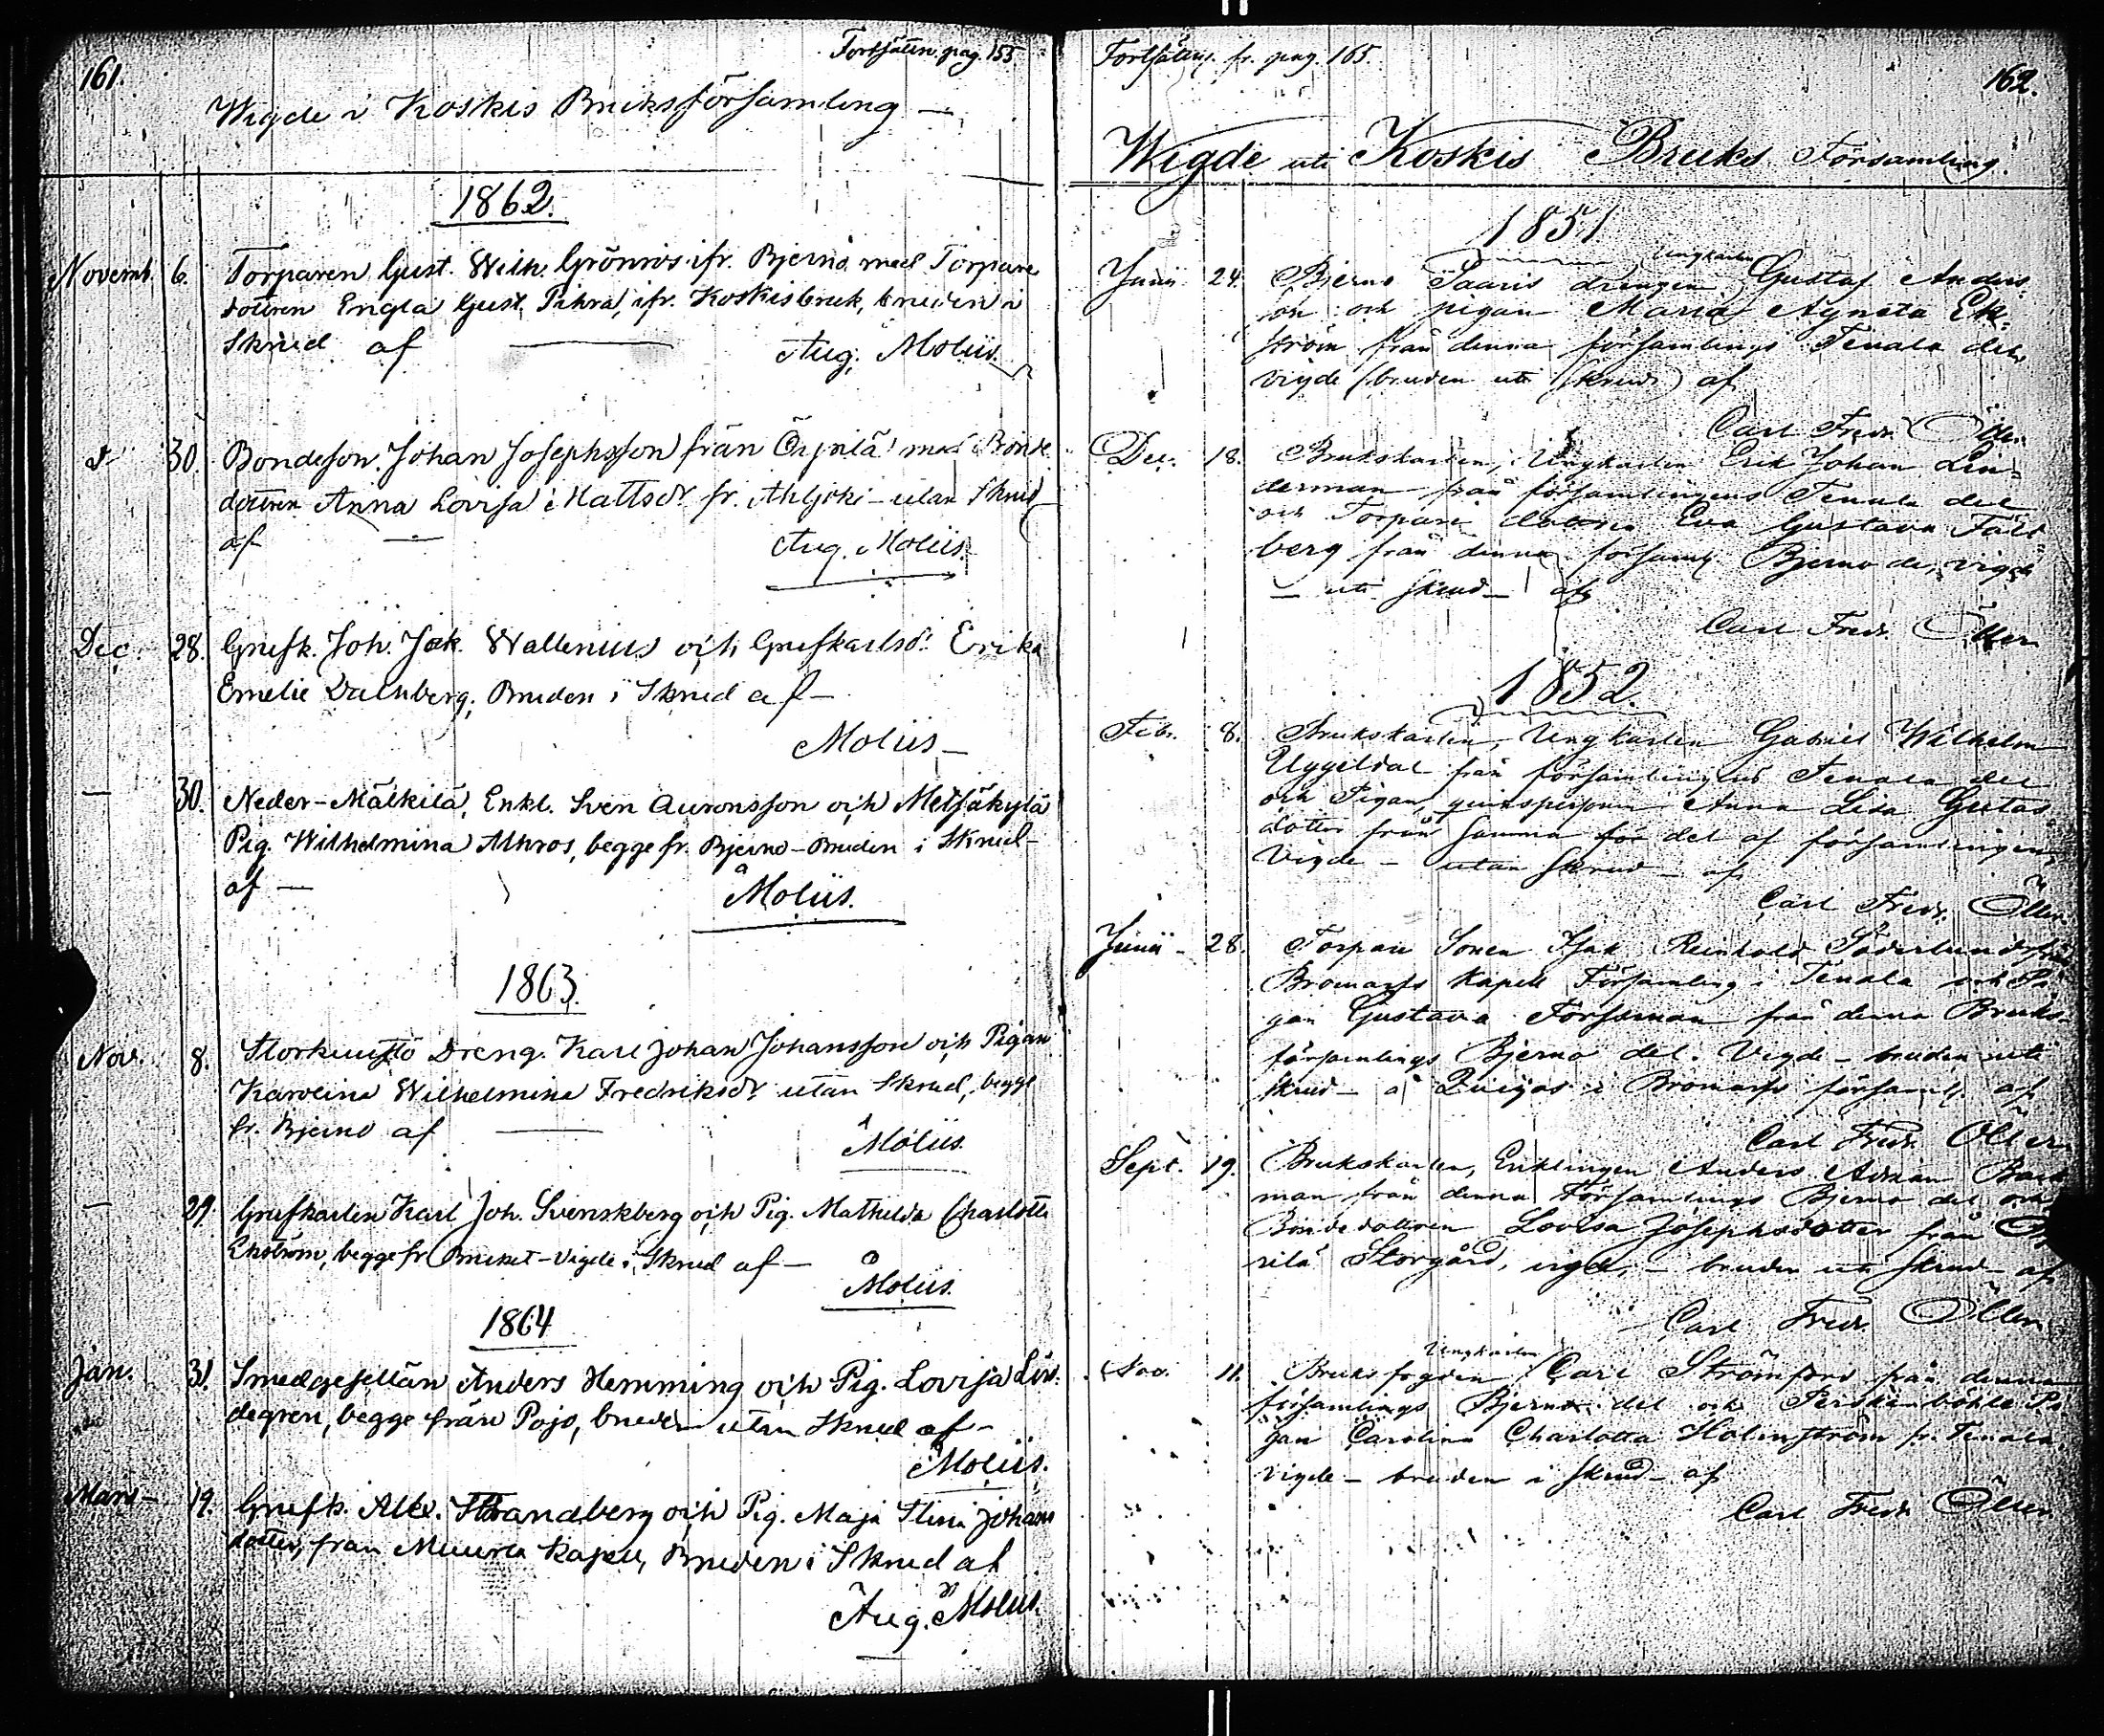 161.
Fortsättn. pag. 155
Wigde i Koskis Bruksförsamling —
1862.
Novemb. 6. Torparen Gust. Wilh. Grönros ifr. Bjerno med Torpare
dottren Engla Gust. Pihra, ifr. Koskisbruk, bruden i
Skrud af — Aug. Moliis.
d° 30. Bondeson Johan Josephsson från med Bonde
dottren Anna Lovisa Mattsdr fr. Ahljoki – utan Skrud
af — Aug. Moliis.
Dec. 28. Grufk. Joh. Jak. Wallenius och Grufkarlsd: Erika
Emelie Dalnberg, Bruden i Skrud af —
Moliis —
— 30. Neder-Mälkilä, Enkl. Sven Auronsson och Metsäkylä
Pig. Wilhelmina Alhros, begge fr. Bjerno – Bruden i Skrud –
af — A Moliis.
1863.
Nov. 8. Storkuusto Dreng. Karl Johan Johansson och Pigan
Karolina Wilhelmina Fredriksdr utan Skrud, begge
fr. Bjerno af — A Moliis.
— 29. Grufkarlen Karl Joh. Svenskberg och Pig. Mathilda Charlotta
Ekström, begge fr. Bruket – Vigde i Skrud af —
A Moliis.
1864
Jan. 31. Smedgesellän Anders Hemming och Pig. Lovisa Lin-
degren, begge från Pojo, bruden utan Skrud af –
A Moliis.
Mars – 19. Grufk. Alex. Strandberg och Pig. Maja Stina Johans
dotter, från Muurla Kapell, Bruden i Skrud af
Aug. Moliis.
Fortsättn. fr. pag. 165
162.
Wigde uti Koskis Bruks Församling.
1851.
Ungkarlen
Junii 24. Bjerno Saaris drengen Gustaf Anders
son och pigan Maria Agneta Ek-
ström från denna församlings Tenala del,
vigde (bruden uti skrud) af
Carl Fredr. Öller
Dec. 18. Brukskarlen, Ungkarlen Erik Johan Lin-
derman från församlingens Tenala del
och Torpare dottren Eva Gustava Fält-
berg från denna församl. Bjerno del, vigde
— uti skrud — af
Carl Fredr. Öller
1852.
Feb. 8. Brukskarlen, Ungkarlen Gabriel Wilhelm
Uggeldal från församlingens Tenala del
och Pigan, qvinspersonen Anna Lisa Gustafs
dotter från samma för del af församlingen,
Vigde – utan skrud – af
Carl Fredr. Öller
Junii – 28. Torpare Sonen Isak Reinhold Söderlund från
Bromarfs Kapell Församling i Tenala och Pi
gan Gustava Forsman från denna Bruks-
församlings Bjerno del. Vigde – bruden uti
skrud – å i Bromarfs församl. af
Carl Fredr. Öller
Sept. 19. Brukskarlen, Enklingen Anders Adrian Back
man från denna Församlings Bjerno del och
Bondedottren Lovisa Josephsdotter från
rilä Storgård, vigde, – bruden uti skrud – af
Carl Fredr. Öller
Ungkarlen
Nov. 11. Bruksfogden Carl Strömfors från denna
församlings Bjerno del och Perskäenböhle Pi
gan Carolina Charlotta Holmström fr. Tenala
vigde – bruden i skrud – af
Carl Fredr. Öller